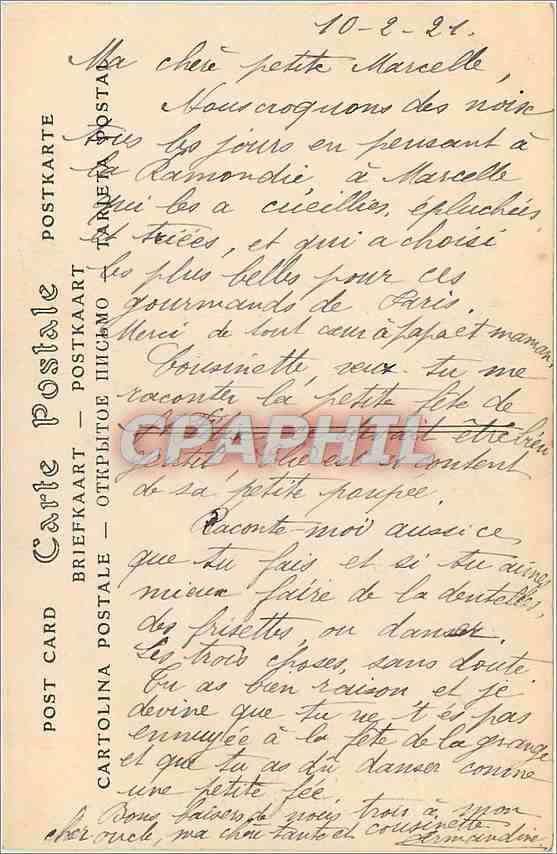 10-2-21.
Ma chère petite Marcelle,
Nous croquons des noix
tous les jours en pensant à
la Ramondie à Marcelle
qui les a cueillies, épluchées
et triées, et qui a choisi
les plus belles pour ces
gourmands de Paris.
Merci de tout cœur à papa et maman.
Cousinette, veux-tu me
raconter la petite fête de
être bien
gentil, content
de sa petite poupée.
Raconte-moi aussi ce
que tu fais et si tu aimes
mieux faire de la dentelle,
des frisettes, ou danser.
Les trois choses, sans doute
Tu as bien raison et je
devine que tu ne t'és pas
ennuyée à la fête de la grange
et que tu as dû danser comme
une petite fée.
Bons baisers de nous trois à mon
cher oncle, ma chère tante et cousinette
Germandine
POST CARD Carte Postale POSTKARTE
BRIEFKAART — POSTKAART
CARTOLINA POSTALE — ОТКРЫТОЕ ПИСЬМО — TARJETA POSTAL
CPAPHIL